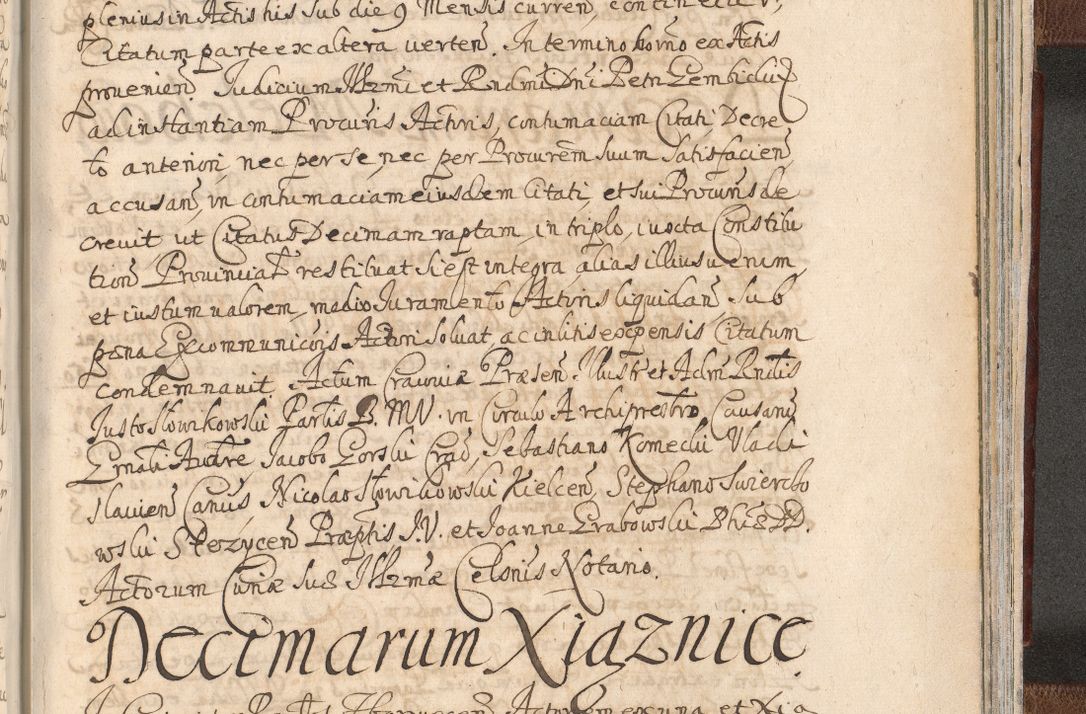 plenius in Actis his sub die 9 Mensis curren, continetur,
Citatum parte ex altera verten. In termino horno ex Actis
provenien. Judicium Illrmi et Rndmi Dni Petri Gembicki
ad instantiam Procuris Actoris, contumaciam Citati Decre
to anteriori, nec per se, nec per Procurem suum satisfacien,
accusan, in contumaciam eiusdem Citati, et sui Procuris de
crevit ut Citatus Decimam raptam, in triplo, iuxta Constitu
tion Provincial restituat si est integra, alias illius verum,
et iustum valorem, medio Juramento Actoris liquidan, sub
pæna Excommunicõis Actori solvat, ac in litis expensis Citatum
condemnavit. Actum Cracoviæ Præsen. Illustr et Adm Rndis
Justo Słowikowski Partis B. M V. in Circulo Archipresbro, Causarum
Gnali Auditore Jacobo Gorski Crac, Sebastiano Komecki Vladi
slavien Canus, Nicolao Słowikowski Kielcen, Stephano Swierczo
wski Skrzycen Præptis J.V. et Joanne Grabowski Phiæ DD.
Actorum Curiæ suæ Illrmæ Celsnis Notario.
Decimarum Xiąznice